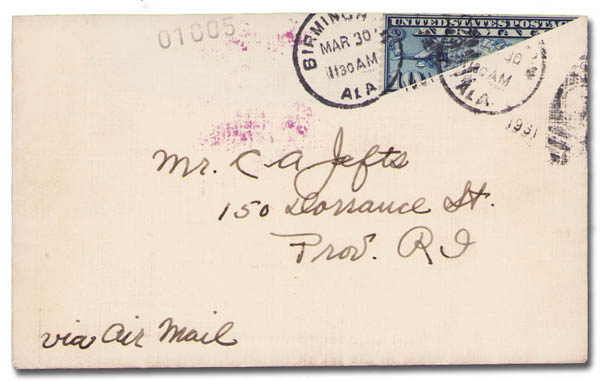 01005
BIRMINGH
MAR 30
1130 AM
ALA.
1931
UNITED STATES POSTAG
30
AM
ALA.
1931
Mr. C A Jefts
150 Dorrance St.
Prov. RI
via Air Mail